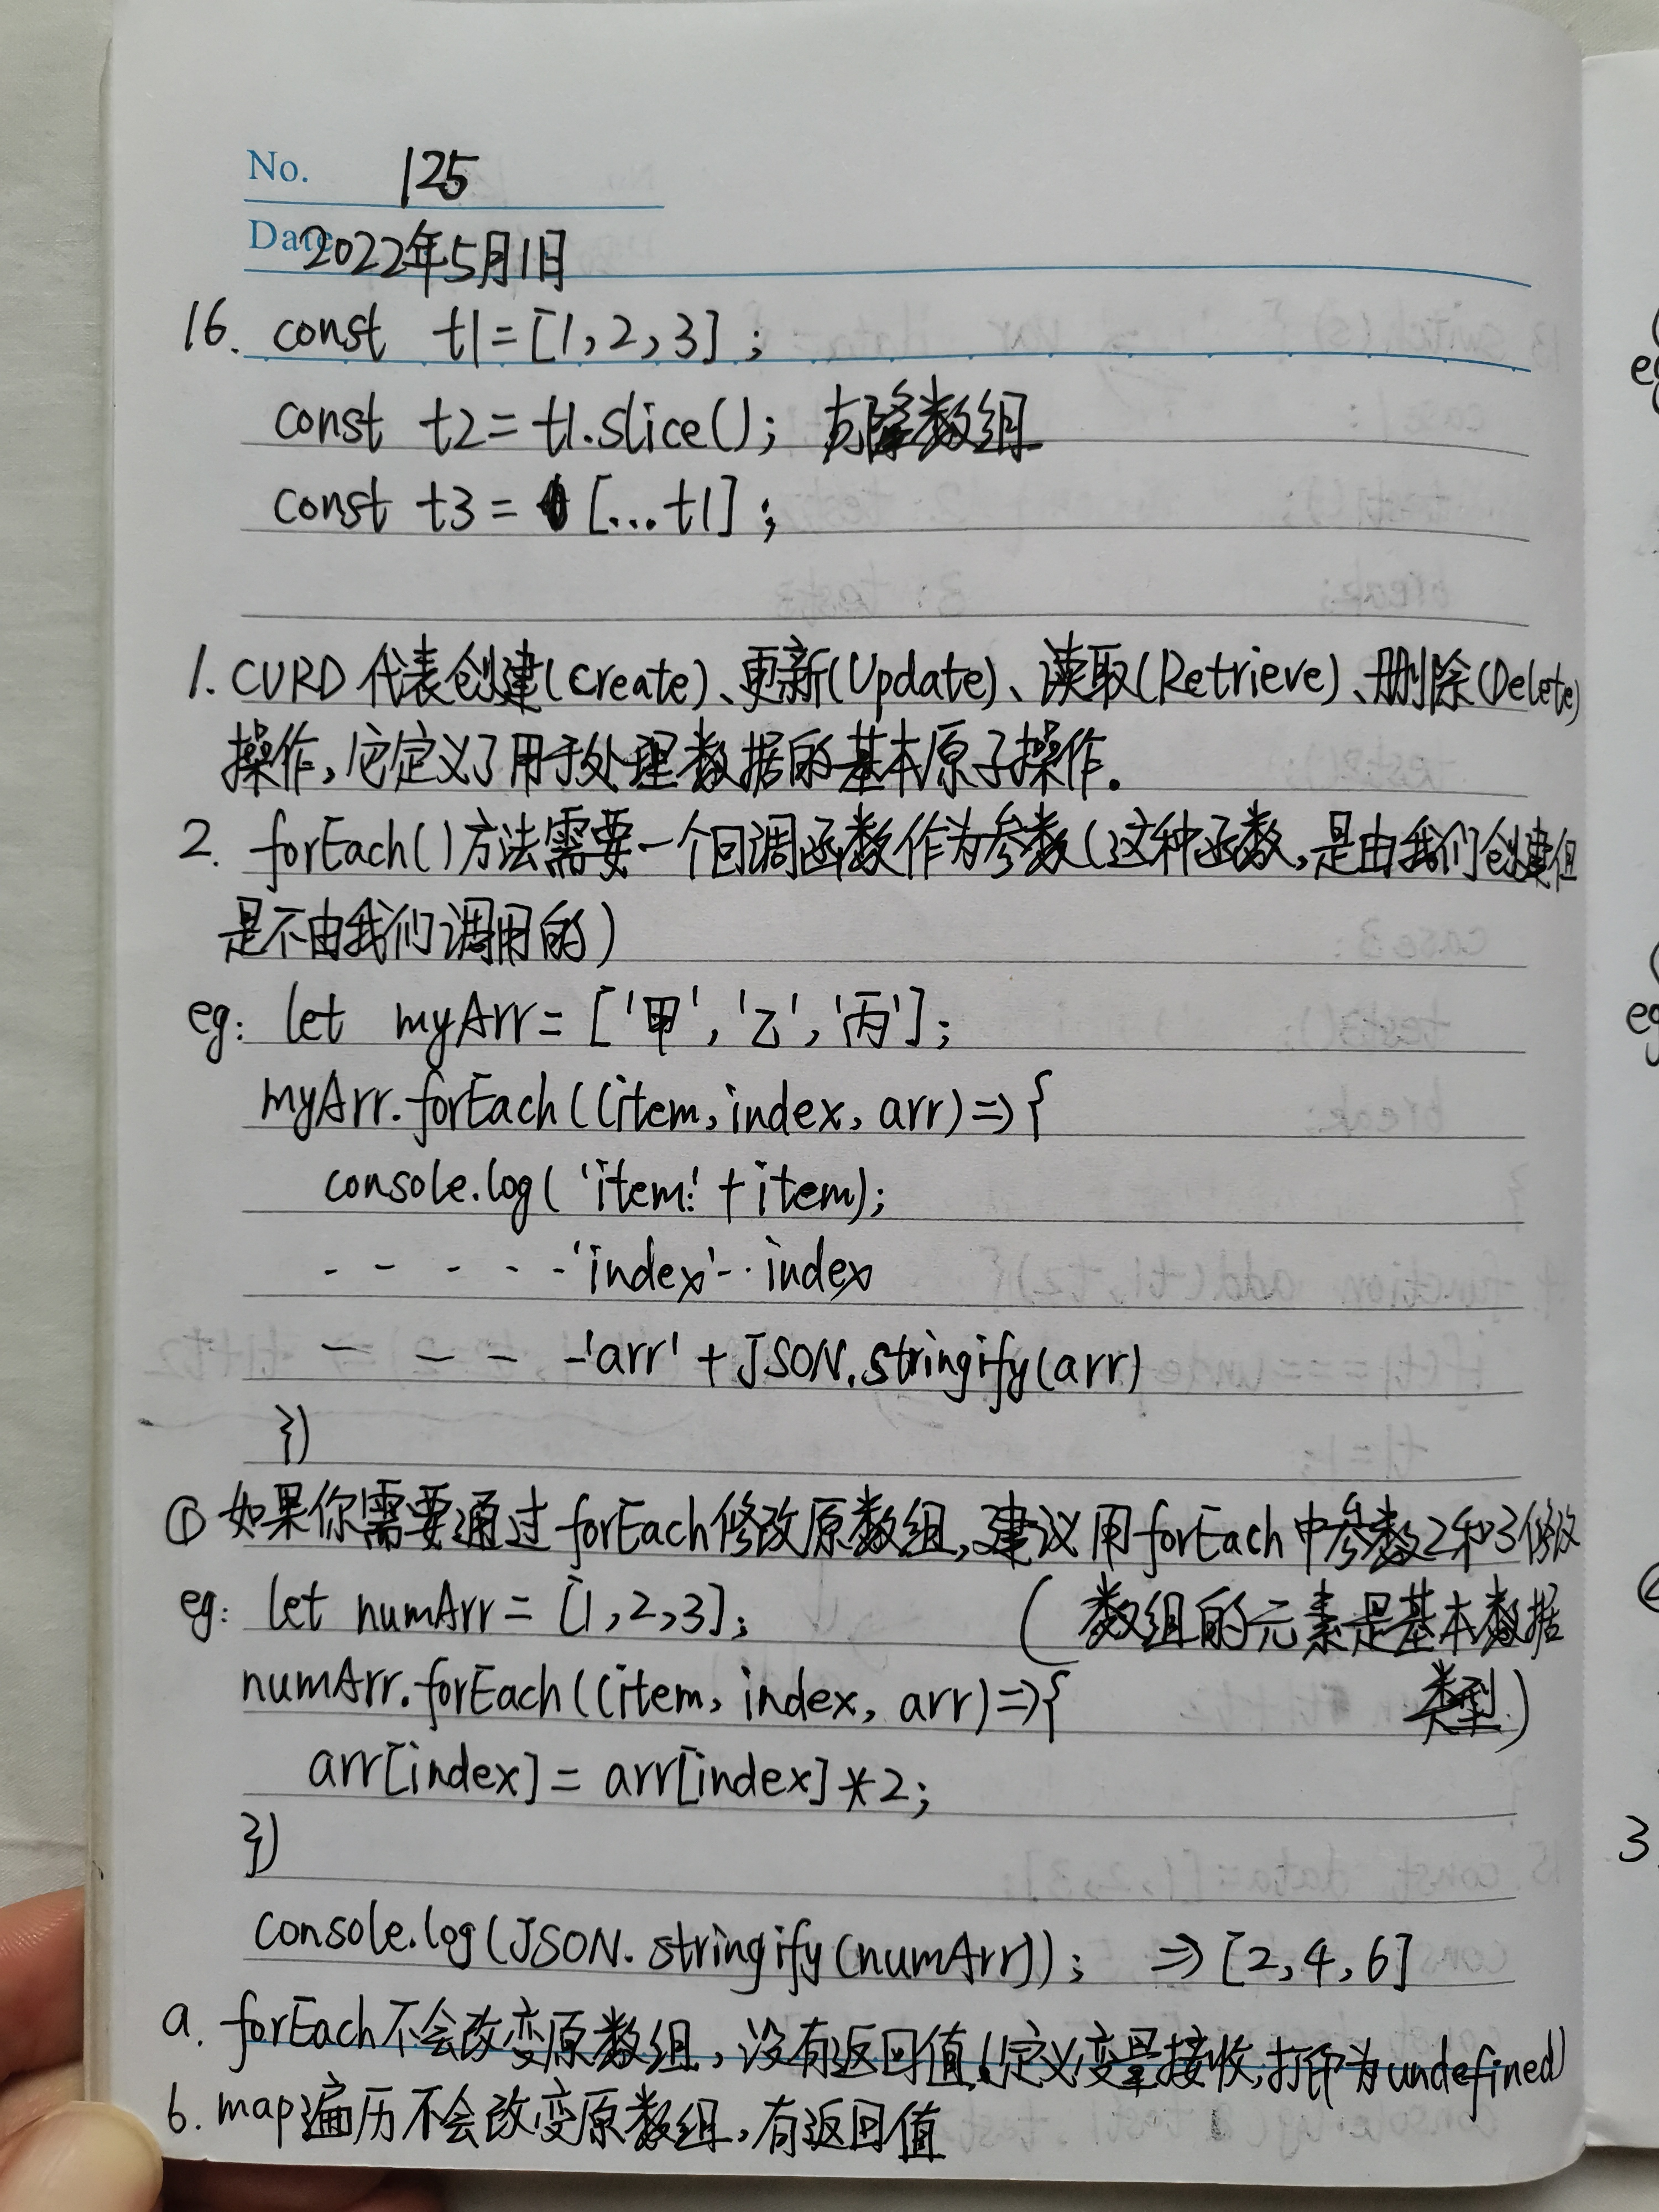 No. 125
Date 2022年5月1日
16. const t1=[1,2,3];
const t2=t1.slice(); 克隆数组
const t3=[...t1];
1. CURD代表创建(Create)、更新(Update)、读取(Retrieve)、删除(Delete)
操作,它定义了用于处理数据的基本原子操作。
2. forEach()方法需要一个回调函数作为参数(这种函数,是由我们创建但
是不由我们调用的)
eg: let myArr=['甲','乙','丙'];
myArr.forEach((item,index,arr)=>{
console.log('item:'+item);
- - - - - 'index'-- index
- - - - 'arr'+JSON.stringify(arr)
})
① 如果你需要通过forEach修改原数组,建议用forEach中参数2和3修改
eg: let numArr=[1,2,3]; (数组的元素是基本数据
numArr.forEach((item,index,arr)=>{ 类型)
arr[index]=arr[index]*2;
})
console.log(JSON.stringify(numArr)); => [2,4,6]
a. forEach不会改变原数组,没有返回值(定义变量接收,打印为undefined)
b. map遍历不会改变原数组,有返回值